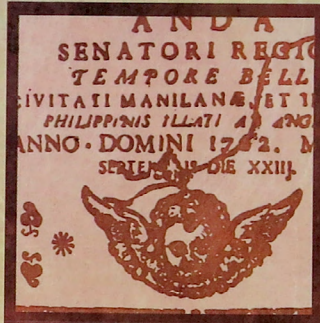 ANDA
SENATORI REGIO
TEMPORE BELL
CIVITATI MANILANÆ, ET I
PHILIPPINIS ILLATI AB ANG
ANNO · DOMINI 1762. M
DIE XXIIJ.